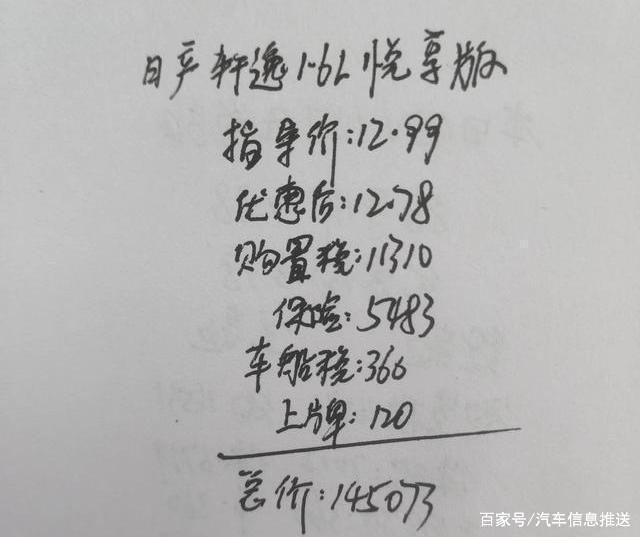 日产轩逸1.6L悦享版
指导价:12.99
优惠后:12.78
购置税:11310
保险:5483
车船税:360
上牌:120
总价:145073
百家号/汽车信息推送